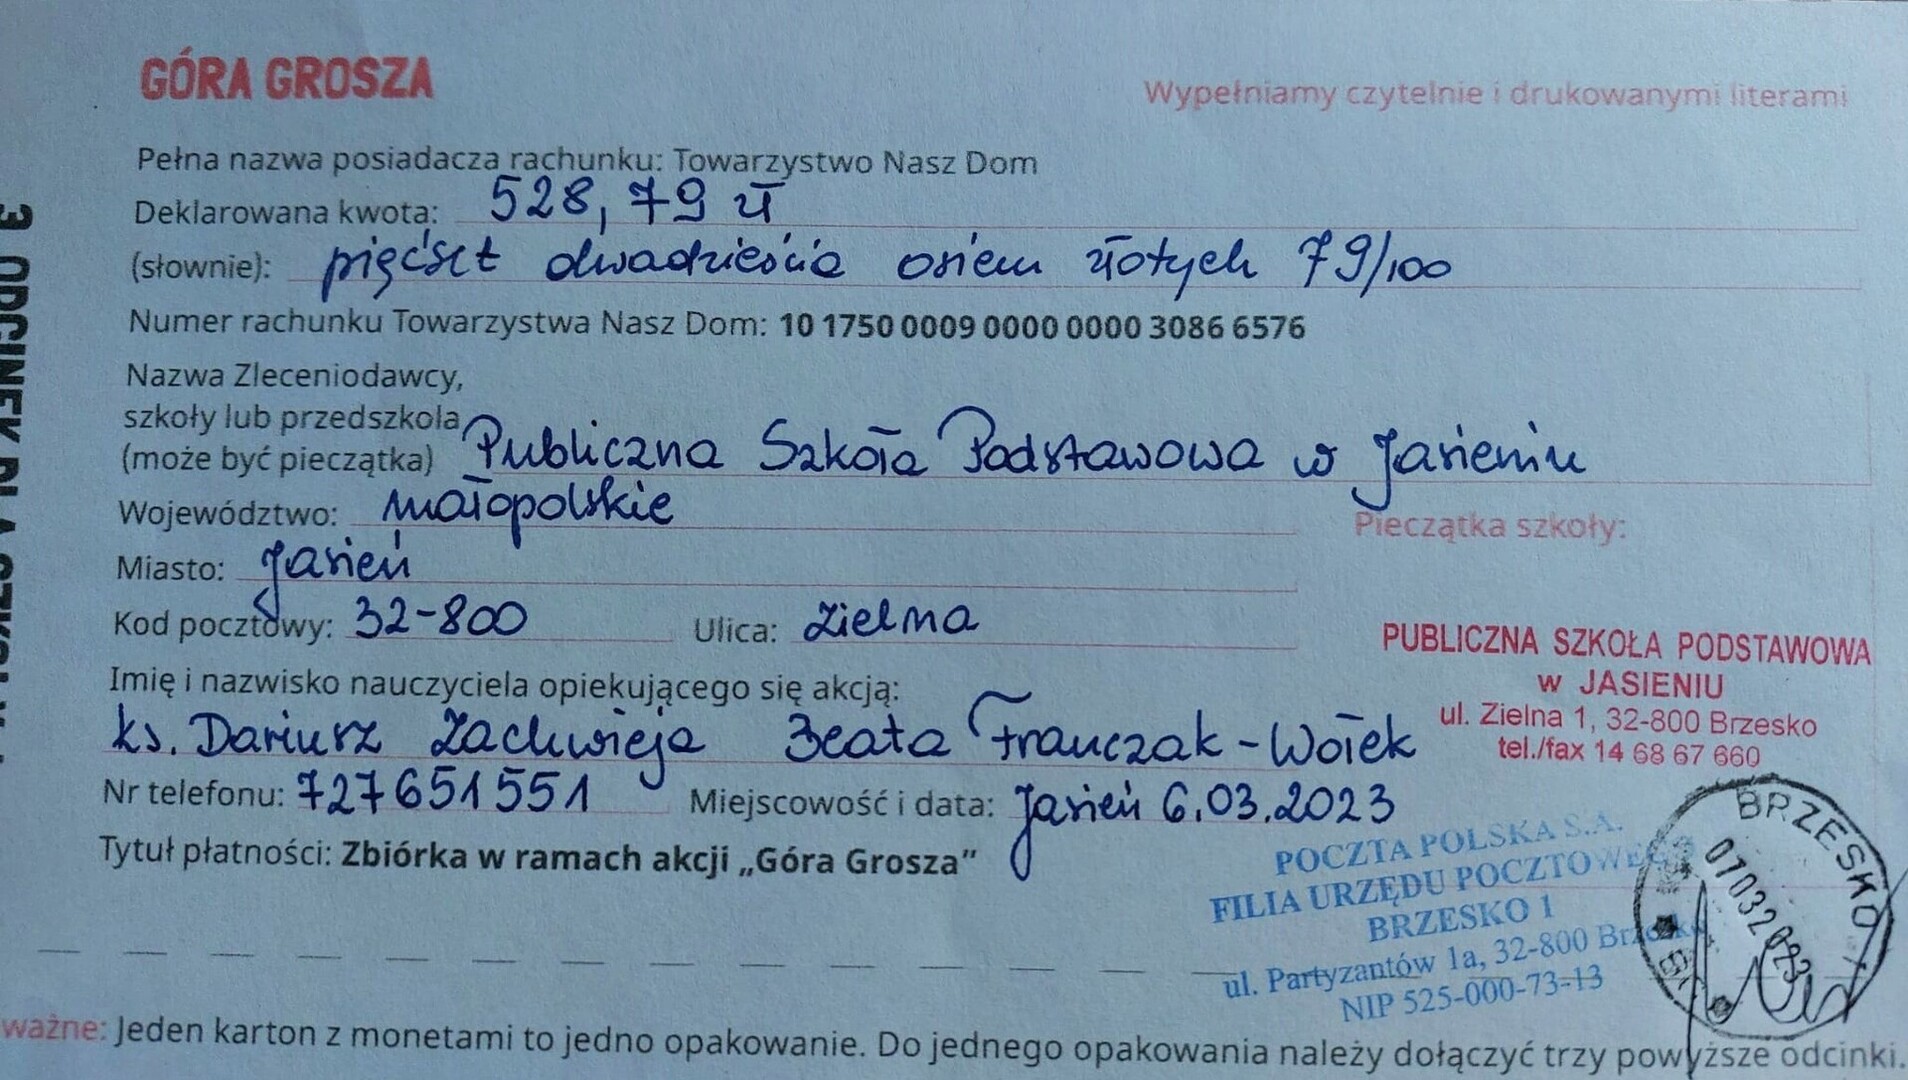 GÓRA GROSZA
Wypełniamy czytelnie i drukowanymi literami
Pełna nazwa posiadacza rachunku: Towarzystwo Nasz Dom
Deklarowana kwota: 528,79 zł
(słownie): pięćset dwadzieścia osiem złotych 79/100
Numer rachunku Towarzystwa Nasz Dom: 10 1750 0009 0000 0000 3086 6576
Nazwa Zleceniodawcy,
szkoły lub przedszkola
(może być pieczątka) Publiczna Szkoła Podstawowa w Jasieniu
Województwo: małopolskie
Pieczątka szkoły:
Miasto: Jasień
Kod pocztowy: 32-800 Ulica: Zielna
PUBLICZNA SZKOŁA PODSTAWOWA
w JASIENIU
ul. Zielna 1, 32-800 Brzesko
tel./fax 14 68 67 660
Imię i nazwisko nauczyciela opiekującego się akcją:
ks. Dariusz Zachwieja Beata Franczak-Wołek
Nr telefonu: 727651551 Miejscowość i data: Jasień 6.03.2023
Tytuł płatności: Zbiórka w ramach akcji „Góra Grosza”
POCZTA POLSKA S.A.
FILIA URZĘDU POCZTOWEGO
BRZESKO 1
ul. Partyzantów 1a, 32-800 Brzesko
NIP 525-000-73-13
BRZESKO
07032023
ważne: Jeden karton z monetami to jedno opakowanie. Do jednego opakowania należy dołączyć trzy powyższe odcinki.